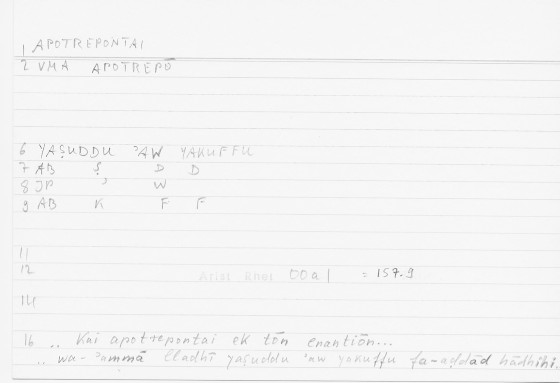 1 APOTREPONTAI
2 VMA APOTREPŌ
6 YAṢUDDU ʾAW YAKUFFU
7 AB Ṣ D D
8 JP ʾ W
9 AB K F F
11
12 Arist Rhet 00a1 = 157.9
14
16 .. Kai apotrepontai ek tōn enantiōn...
.. wa-ʾammā lladhī yaṣuddu ʾaw yakuffu fa-aḍdād hādhihi.